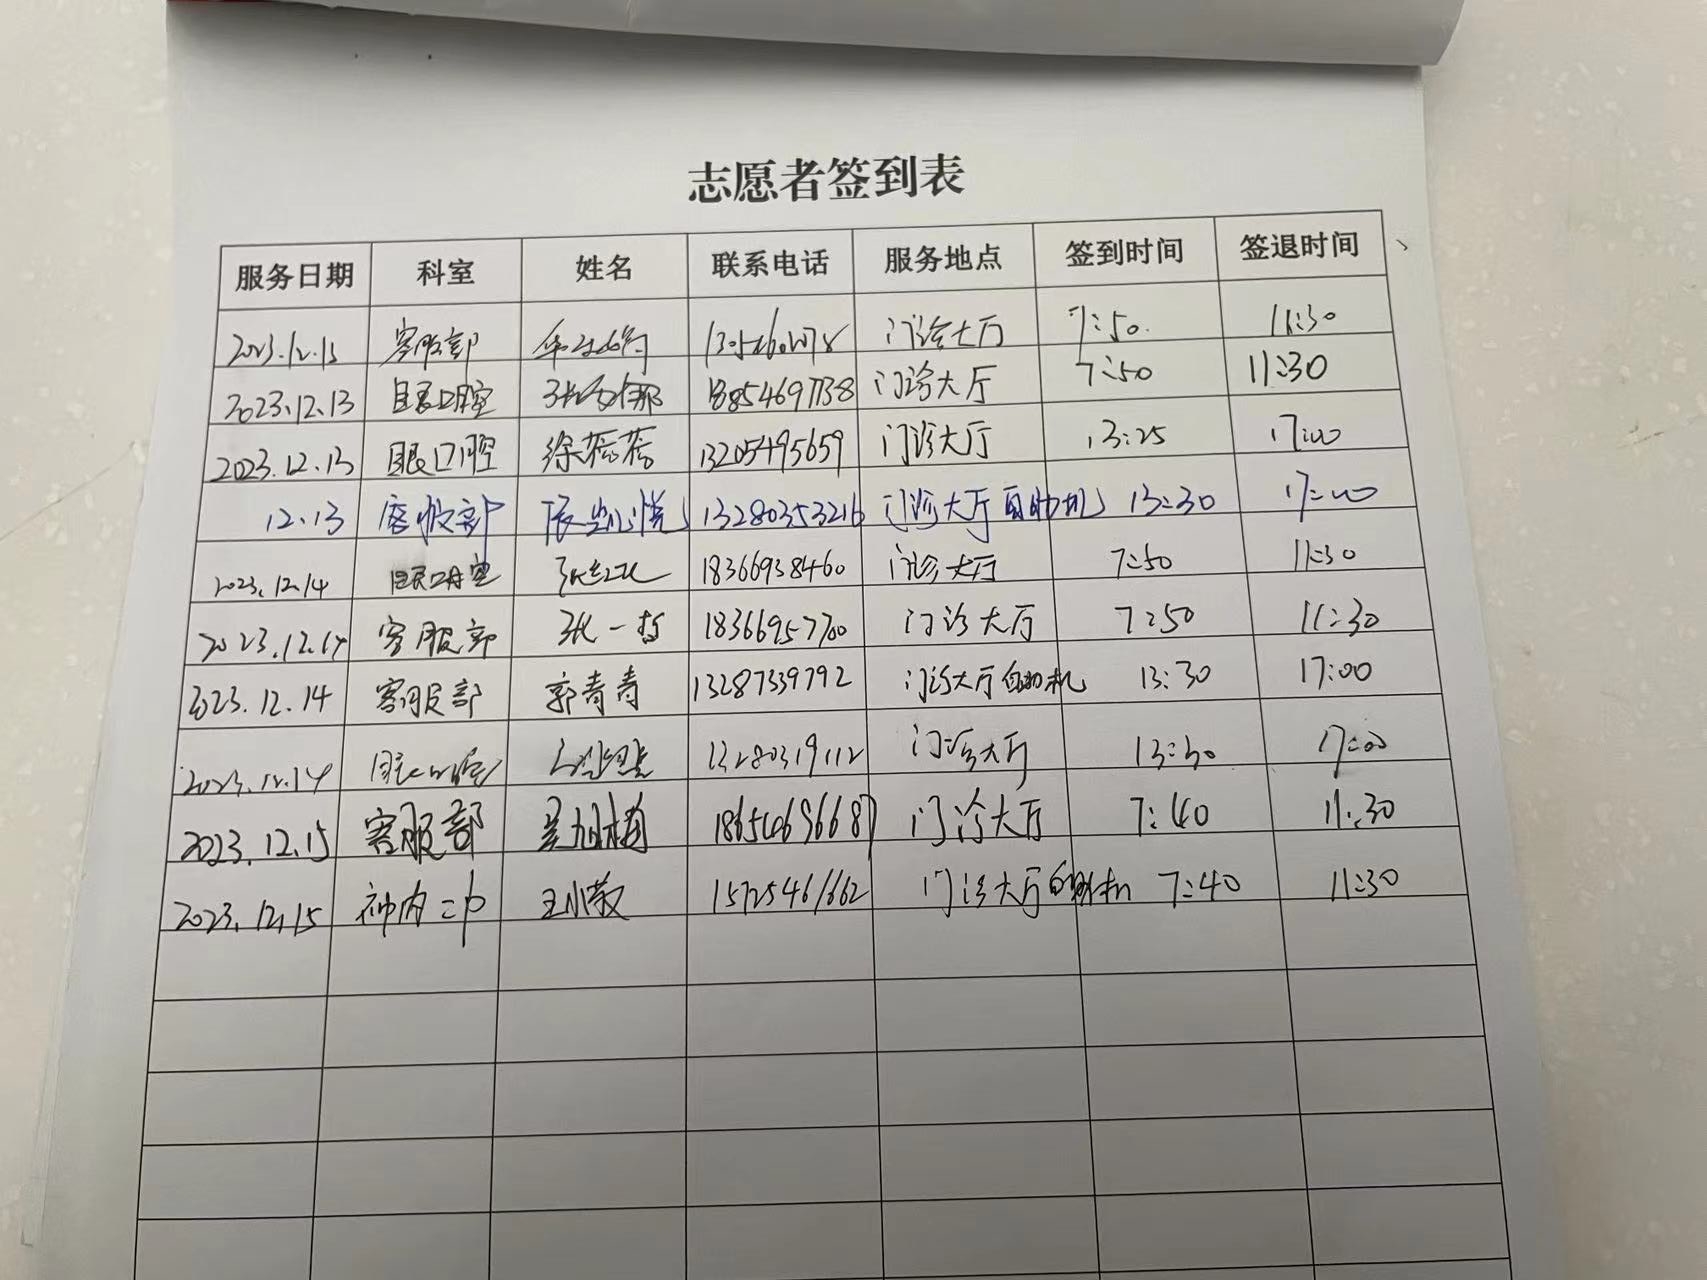 志愿者签到表
服务日期 科室 姓名 联系电话 服务地点 签到时间 签退时间
2023.12.13 客服部 门诊大厅 7:50. 11:30
2023.12.13 眼口腔 门诊大厅 7:50 11:30
2023.12.13 眼口腔 徐蕊蕊 13205495659 门诊大厅 13:25 17:00
12.13 客服部 13280353216 门诊大厅自助机 13:30 17:00
2023.12.14 眼口腔 张红 18366938460 门诊大厅 7:50 11:30
2023.12.14 客服部 张一 18366957700 门诊大厅 7:50 11:30
2023.12.14 客服部 郭青青 13287339792 门诊大厅自助机 13:30 17:00
2023.12.14 13280319112 门诊大厅 13:30 17:00
2023.12.15 客服部 门诊大厅 7:40 11:30
2023.12.15 神内二 王小敏 15725461662 门诊大厅自助机 7:40 11:30